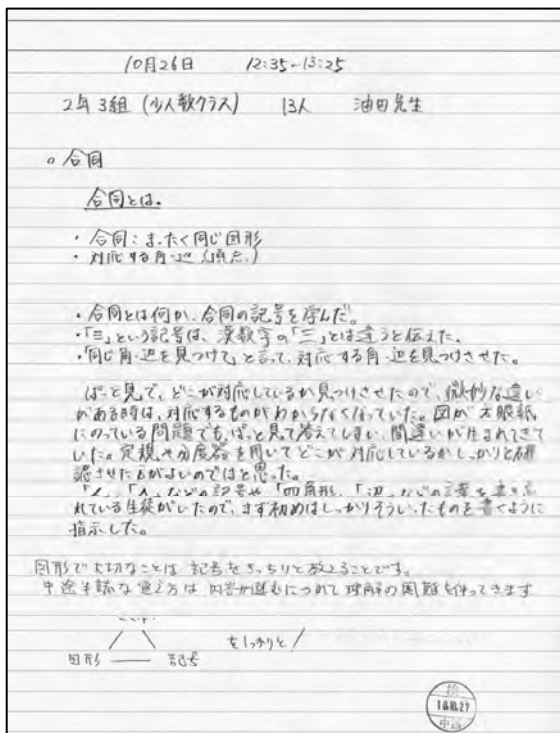 10月26日　12:35~13:25
2年3組（少人数クラス）　13人　油田先生
○合同
合同とは。
・合同：まったく同じ図形
・対応する角・辺（頂点）
・合同とは何か、合同の記号を学んだ。
・「≡」という記号は、漢数字の「三」とは違うと伝えた。
・「同じ角・辺を見つけて」と言って、対応する角・辺を見つけさせた。
ぱっと見で、どこが対応しているか見つけさせたので、微妙な違い
がある時は、対応するものがわからなくなっていた。図が方眼紙
にのっている問題でも、ぱっと見て答えてしまい、間違いが生まれてきて
いた。定規や分度器を用いてどこが対応しているかしっかりと確
認させた方がよいのではと思った。
「∠」、「△」などの記号や「四角形」、「辺」などの言葉を書き忘
れている生徒がいたので、まず初めはしっかりそういったものを書くように
指示した。
図形で大切なことは 記号をきっちりと教えることです。
中途半端な覚え方は 内容が進むにつれて理解の困難を伴ってきます
図形 ― 記号　をしっかりと
18.10.27